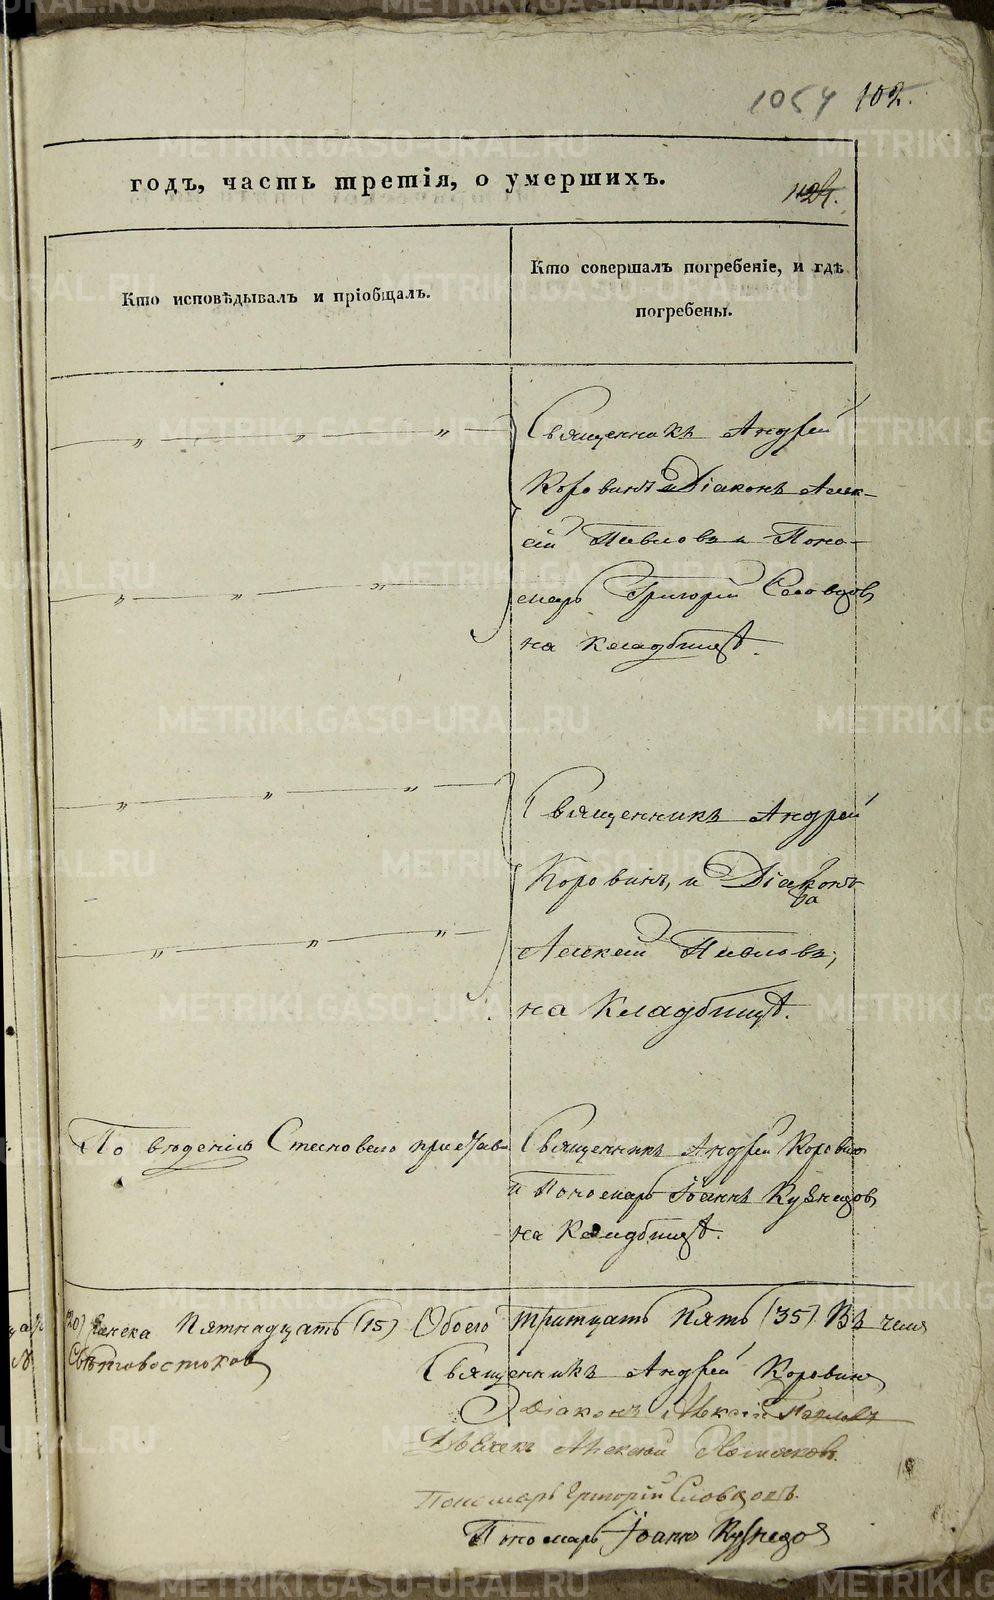 1054 102.
годъ, часть третія, о умершихъ.
Кто исповѣдывалъ и пріобщалъ.
Кто совершалъ погребеніе, и гдѣ
погребены.
Священникъ Андрей
Коровинъ и Діаконъ Алек-
сій Павловъ и Поно-
марь Григорій Словцовъ
на кладбищѣ.
Священникъ Андрей
Коровинъ, и Діаконъ
Алексій Павловъ,
на Кладбищѣ.
По Священникъ Андрей Коровинъ
и Пономарь Іоаннъ Кузнецовъ
на Кладбищѣ.
Пятнадцать (15) Обоего тритцать пять (35) Въ
Священникъ Андрей Коровинъ
Діаконъ Алексій Павловъ
Алексей
Пономарь Григорій Словцовъ.
Пономарь Іоаннъ Кузнецовъ
METRIKI.GASO-URAL.RU